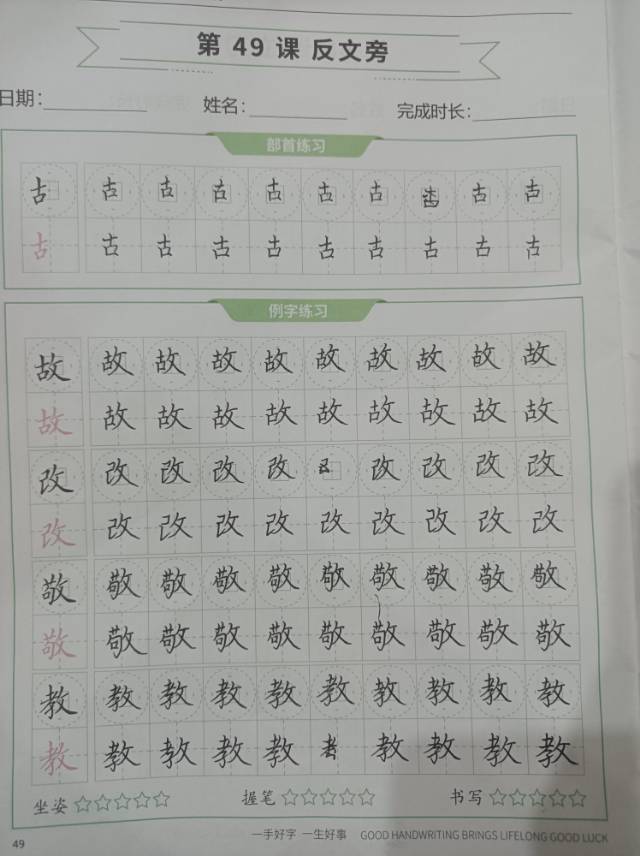 第 49 课 反文旁
日期: 姓名: 完成时长:
部首练习
古 古 古 古 古 古 古 古 古
古 古 古 古 古 古 古 古 古 古
例字练习
故 故 故 故 故 故 故 故 故 故
故 故 故 故 故 故 故 故 故 故
改 改 改 改 改 改 改 改 改
改 改 改 改 改 改 改 改 改 改
敬 敬 敬 敬 敬 敬 敬 敬 敬 敬
敬 敬 敬 敬 敬 敬 敬 敬 敬 敬
教 教 教 教 教 教 教 教 教 教
教 教 教 教 教 孝 教 教 教 教
坐姿 ☆☆☆☆☆ 握笔 ☆☆☆☆☆ 书写 ☆☆☆☆☆
49 一手好字 一生好事 GOOD HANDWRITING BRINGS LIFELONG GOOD LUCK